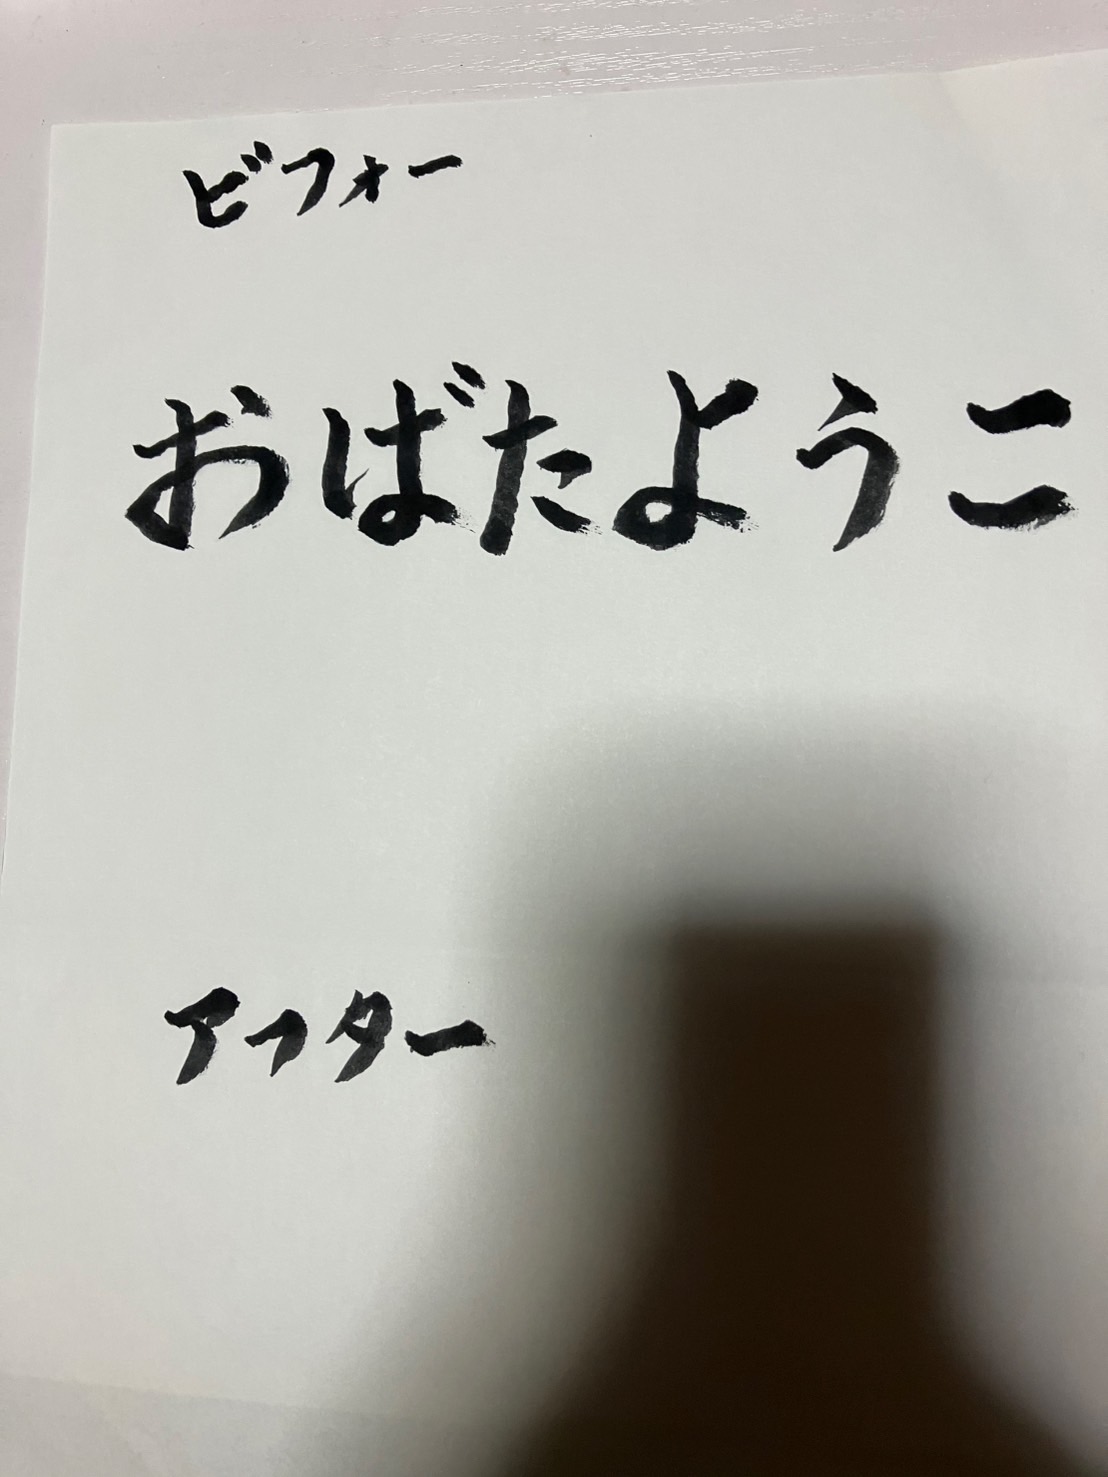 ビフォー
おばたようこ
アフター